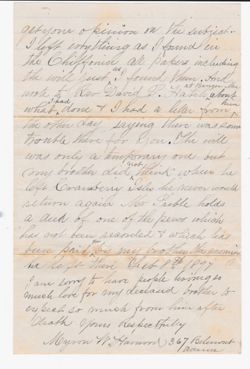 get your opinion on the subject.
I left everything as I found in
the Chiffonier all papers including
the will just as I found them. And
wrote to Rev David P.
what I had done & I had a letter from him
the other day saying there was some
trouble there for you. The will
was only a temporary one but
my brother did not think when he
left Cranberry Isles he never would
return again Mr holds
a deed of one of the pews which
has not been recorded & which has
been paid by my brother
he left there Oct 1st
I am sorry to have people having so
much love for my deceased brother to
expect so much from him after
Death Yours respectfully
Myron W. 367 Belmont